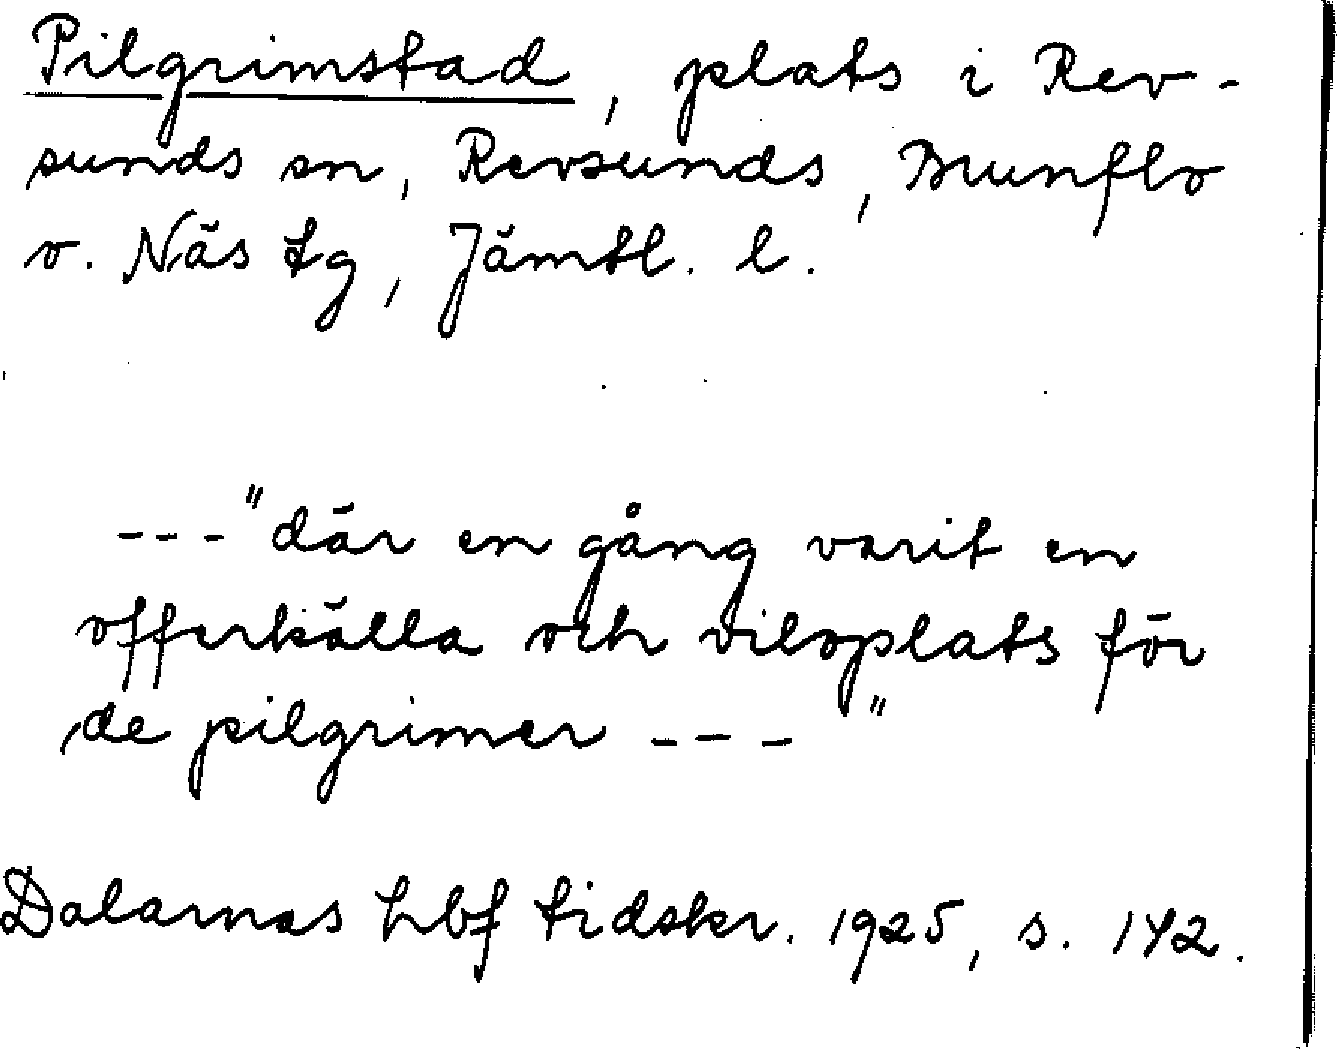 Pilgrimstad, plats i Rev-
sunds sn, Revsunds, Brunflo
o. Näs tg, Jämtl. l.
---"där en gång varit en
offerkälla och viloplats för
de pilgrimer ---"
Dalarnas hbf tidskr. 1925, s. 142.